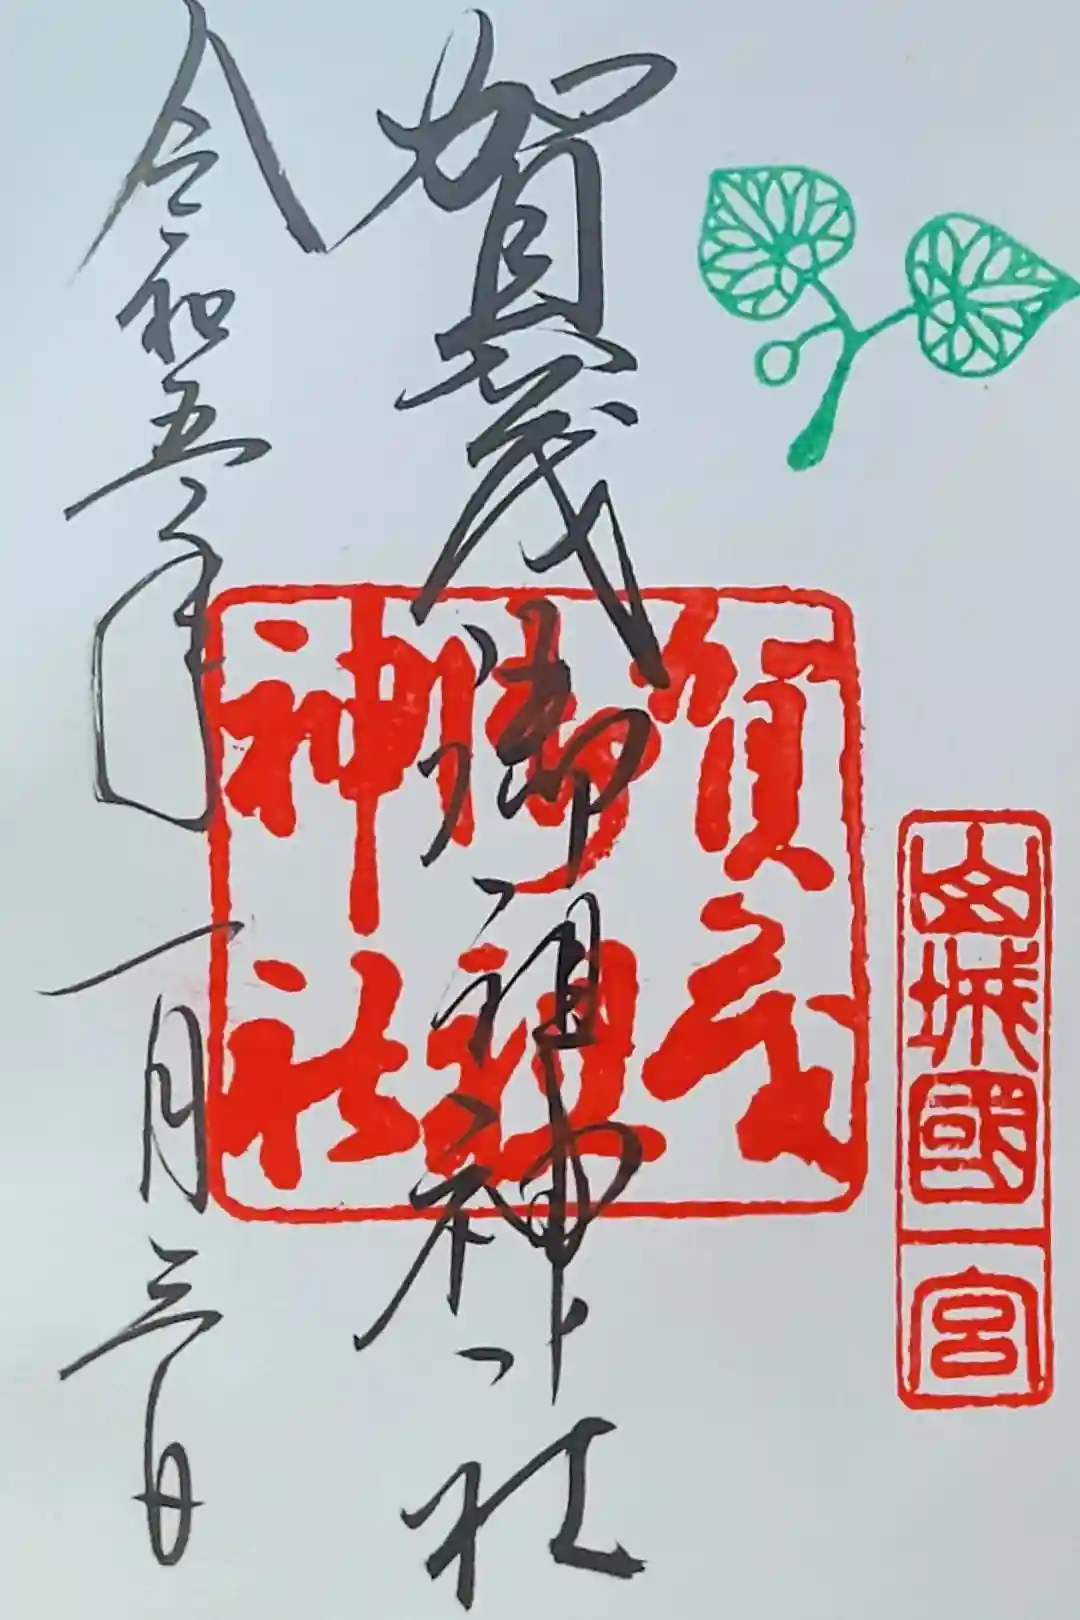 山城國一宮
賀茂御祖神社
賀茂
御祖
神社
令和五年一月三日